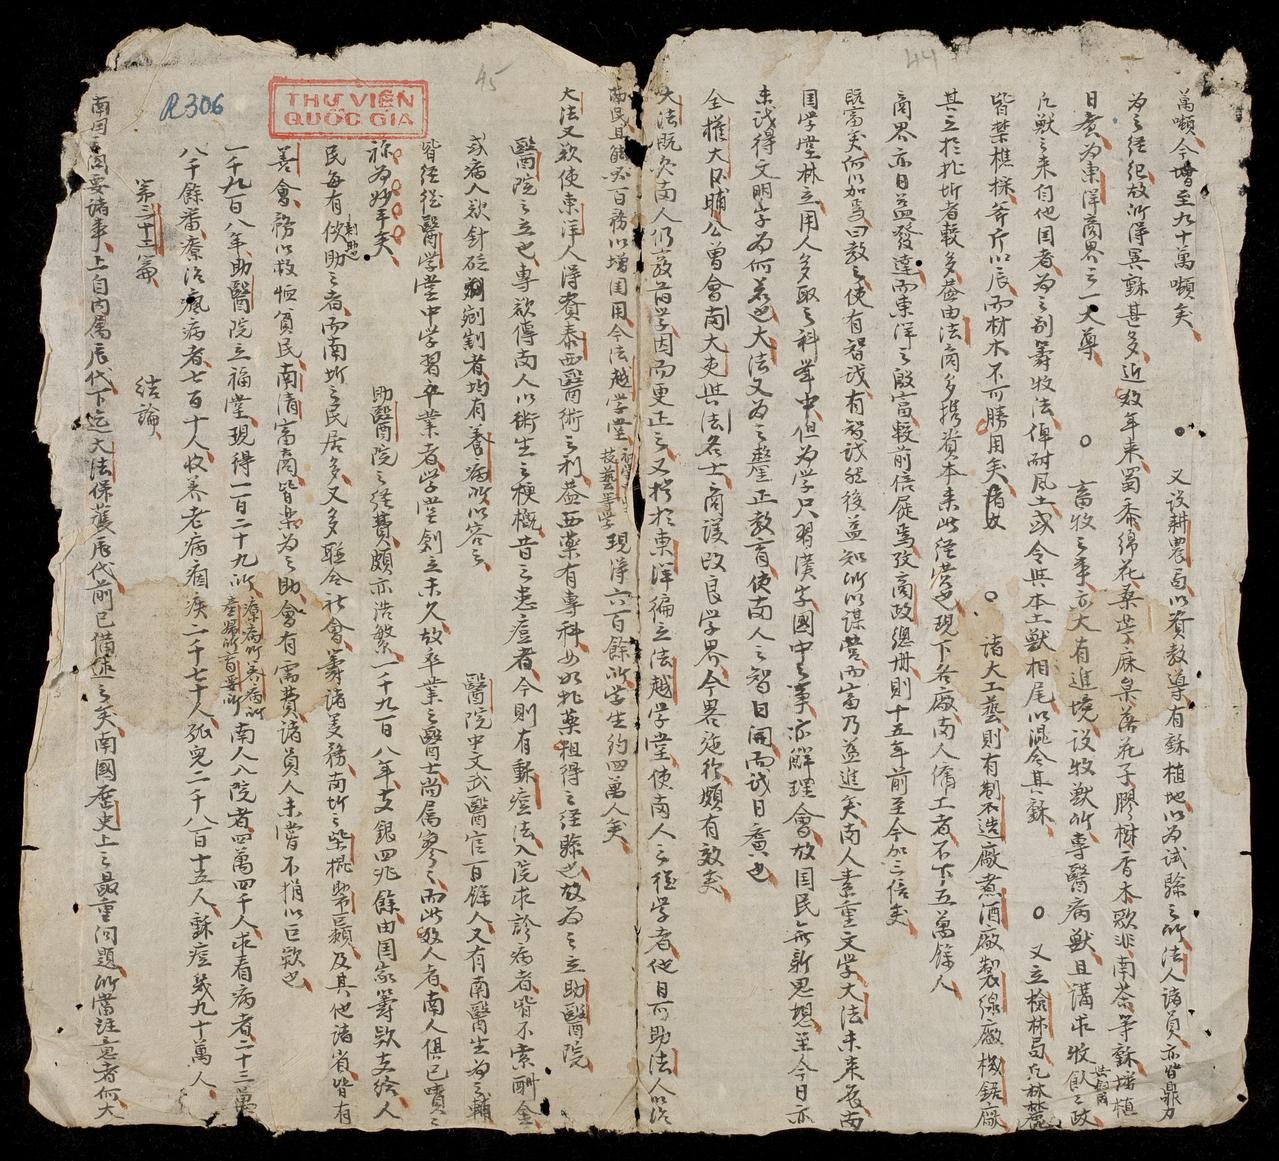 44
萬噸今增至九十萬噸矣 ○ 又設耕農局以資教導有穌植地以為試驗之所法人諸員亦皆鼎力
為之經紀故所得冥穌甚多近數年來蜀黍綿花桑苧麻枲落花子膠樹香木歌非南茶等穌增植
日廣為東洋商界之一大尊 ○ 畜牧之事亦大有進境設牧獸所專醫病獸且講求收飲之政
凡獸之來自他国者為之別籌牧法俾耐風土或令與本土獸相尾以混合其穌 ○ 又立檢林局凡林麓
皆禁樵採斧斤以辰而材木不可勝用矣 ○ 諸大工藝則有製造廠煮酒廠製線廠機鋸廠
其立於北圻者較多蓋由法商多携資本来此経營也現下各廠南人傭工者不下五萬餘人
商界亦日益發達而東洋之殷富較前倍蓰焉攷商政總冊則十五年前至今加三倍矣
既富矣何以加焉曰教之使有智識有智識然後益知所以謀營而富乃益進矣南人素重文学大法未来辰南
国学堂林立用人多取之科举中但為学只習漢字國中之事亦鮮理會故国民無新思想至今日亦
未識得文明字為何義也大法又為之釐正教育使南人之智日開而識日廣也
全權大臣補公曾會南大吏與法名士商議改良学界今畧施行頗有效矣
大法既欠南人仍教旧学因而更正之又於東洋徧立法越学堂使南人之往学者他日可助法人以治
南民且能百務以增国用今法越学堂技藝学堂現得六百餘所学生約四萬人矣
45
大法又欲使東洋人得賚泰西醫術之利益西薬有專科如北薬粗得之経驗也故為之立助醫院
醫院之立也專欲傳南人以術生之梗概昔之患痘者今則有種痘法入院求診病者皆不索酬金
或病人欲針砭剜割者均有養病所以容之 醫院中文武醫官百餘人又有南醫生為之輔
皆経從醫学堂中学習卒業者学堂創立未久故卒業之醫士尚属寥寥而此数人者南人俱已嘖嘖
称為妙手矣 助醫院之経費頗亦浩繁一千九百八年支銀四兆餘由国家籌欵支給人
民每有佽助之者而南圻之民居多又多聯合社會籌諸美務南圻之柴棍幇巨額及其他諸省皆有
善會務以救恤貧民南清富商皆樂為之助會有需費諸員人未嘗不捐以巨欵也
一千九百八年助醫院立福堂現得一百二十九所療病所養病所產婦所盲妥所南人入院者四萬四千人求看病者二十三萬
八千餘番療治瘋病者七百十人收养老病痼疾一千七十人孤兒二千八百十五人穌痘幾九十萬人
第三十二篇 結論
南国関要諸事上自内属辰代下迄大法保護辰代前已備述之矣南國歷史上之最重问題所當註意者何大
R306
THƯ VIỆN
QUỐC GIA